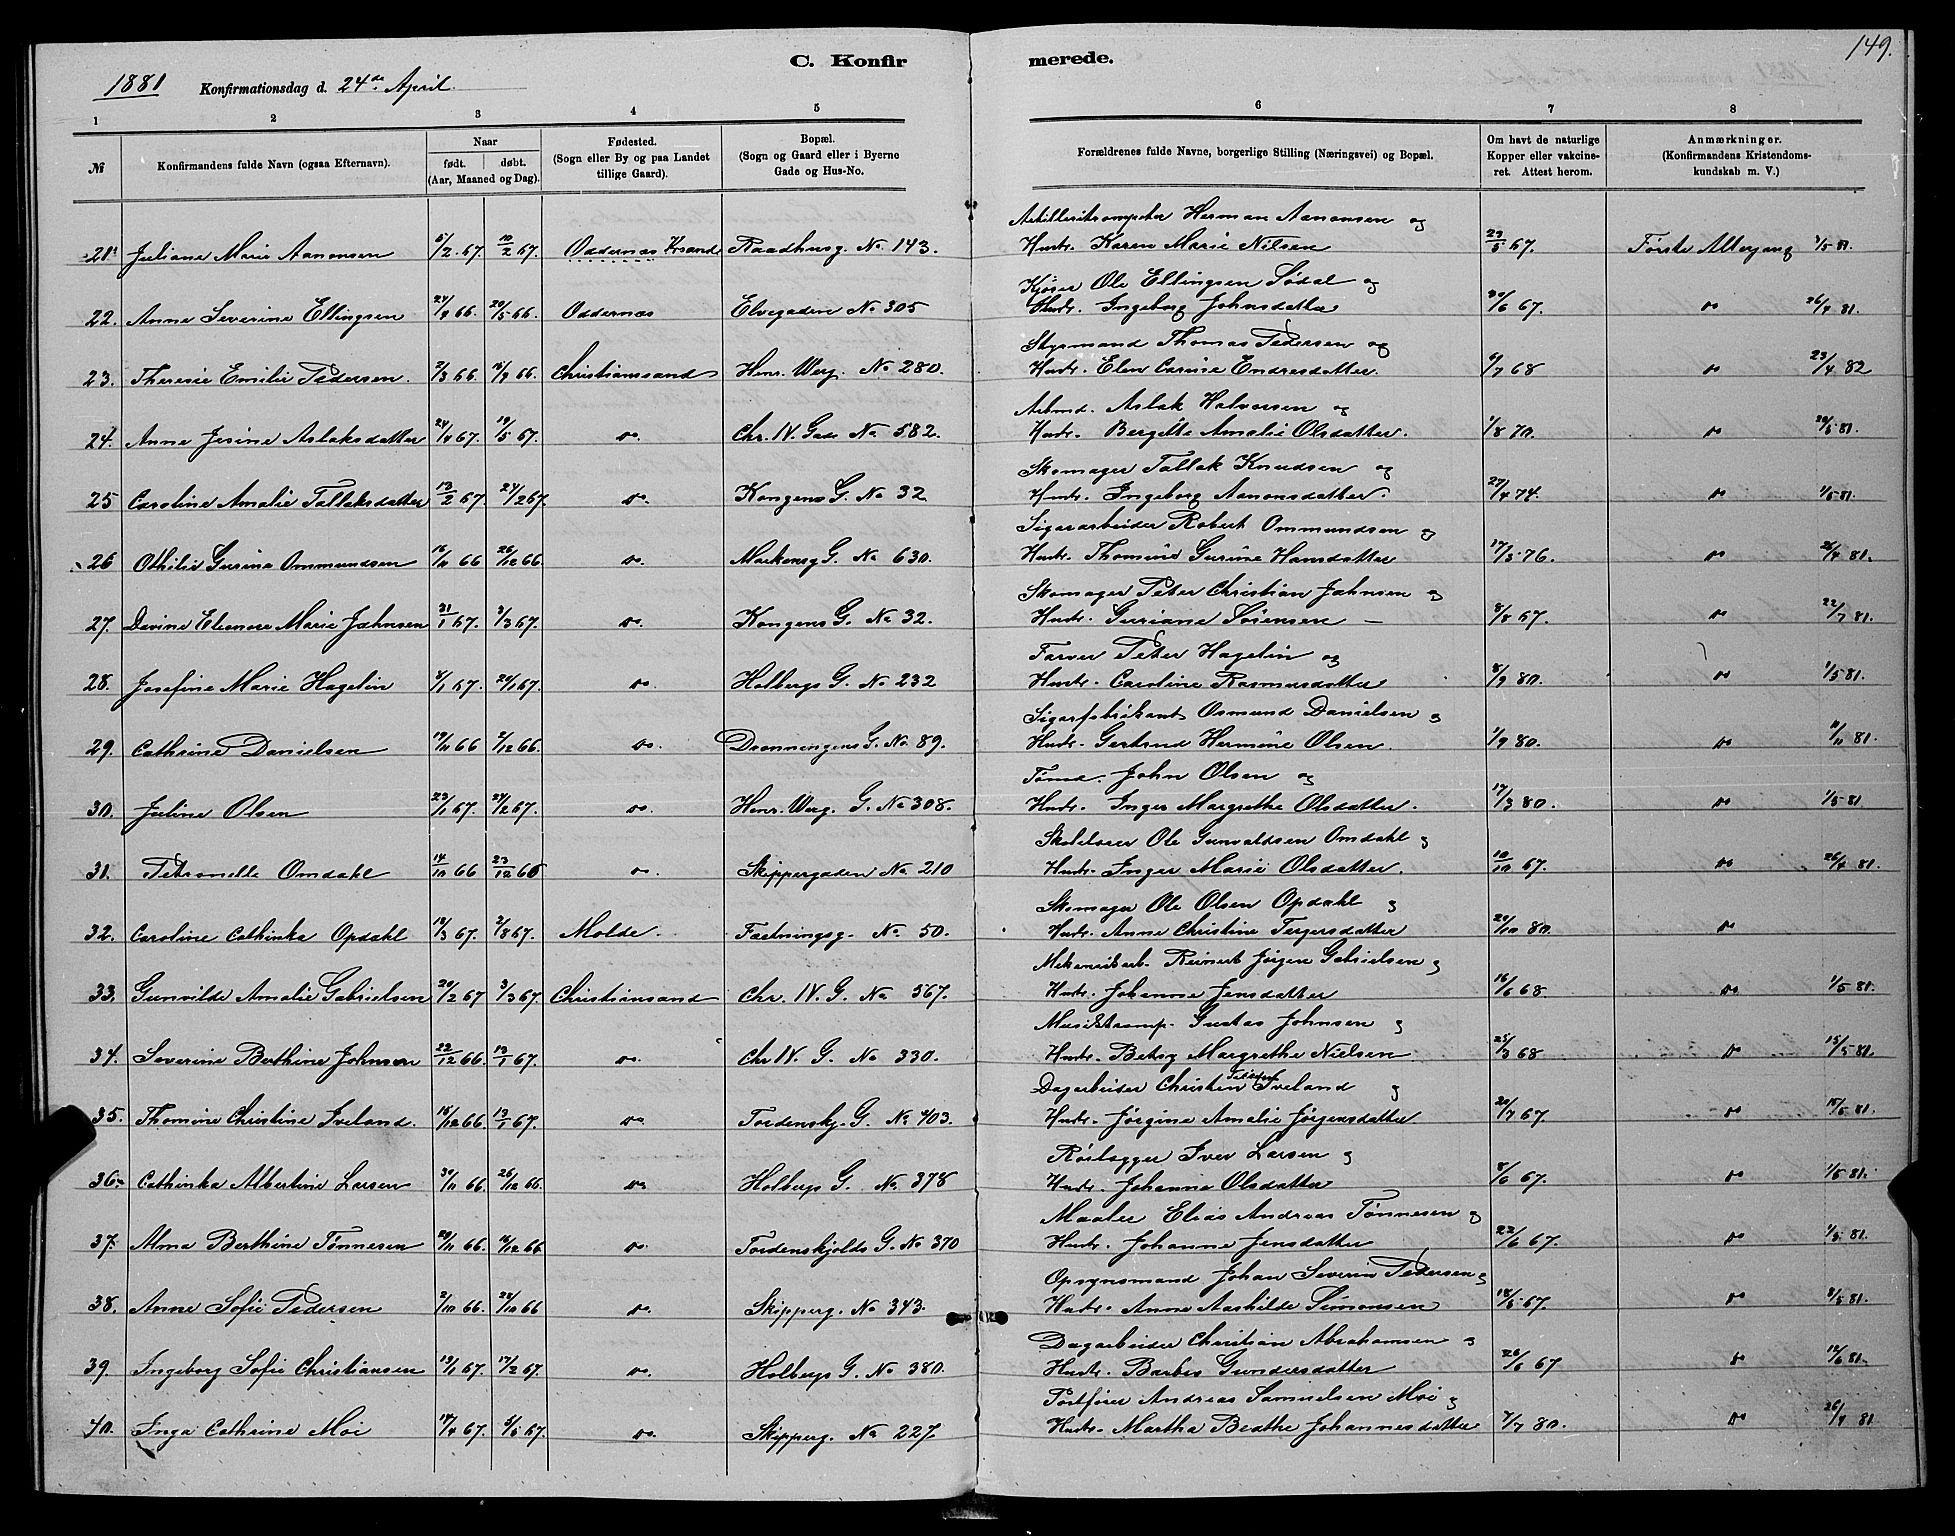 149.
C. Konfirmerede.
1881 Konfirmationsdag d. 24de April.
1 2 3 4 5 6 7 8
№ Konfirmandens fulde Navn (ogsaa Efternavn). Naar født. døbt. (Aar, Maaned og Dag). Fødested. (Sogn eller By og paa Landet tillige Gaard). Bopæl. (Sogn og Gaard eller i Byerne Gade og Hus-No. Forældrenes fulde Navne, borgerlige Stilling (Næringsvei) og Bopæl. Om havt de naturlige Kopper eller vaccineret. Attest herom. Anmærkninger. (Konfirmandens Kristendomskundskab m. V.)
Artilleritrompeter Herman Aanonsen og
21. Juliane Marie Aanonsen 5/2 67. 10/2 67. Oddernæs Krsand Raadhusg. No 143. Hustr. Karen Marie Nilsen 23/5 67. Første Altergang 1/5 81
Kjører Ole Ellingsen Sødal og
22. Anne Severine Ellingsen 66. 20/5 66. Oddernæs Elvegaden No 305 Hustr. Ingeborg Johnsdatter 20/6 67. do 26/4 81.
Styrmand Thomas Pedersen og
23. Theresie Emilie Pedersen. 2/3 66. 66. Christianssand Henr. Werg. No 280. Hustr. Elen Carine Endresdatter 6/7 68 do 23/4 82
Arbmd. Aslak Halvorsen og
24. Anne Jesine Aslaksdatter 24/4 67. 19/5 67. do. Chr. IV. Gade No 582. Hustr. Bergitte Amalie Olsdatter. 1/8 70. do 81.
Skomager Tallak Knudsen og
25 Caroline Amalie Tallaksdatter 13/2 67. 24/2 67. do. Kongens G. No 32 Hustr. Ingeborg Aanonsdatter. 27/4 74. do 1/5 81.
Sigararbeider Robert Ommundsen og
26 Othilie Gurine Ommundsen 16/11 66 26/12 66 do. Markensg G. No 630. Hustr. Thomine Gurine Hansdatter 17/3 76. do 26/4 81.
Skomager Peter Christian Jahnsen og
27. Davine Elenore Marie Jahnsen 31/1 67. 3/3 67. do. Kongens G. No 32. Hustr. Guriane Sørensen — 67. do 22/7 81.
Farver Peter Hagelin og
28. Josefine Marie Hagelin 67. 20/1 67. do. Holbergs G. No 232 Hustr. Caroline Rasmusdatter 8/9 80. do 1/5 81.
Sigarfabrikant Osmund Danielsen og
29. Cathrine Danielsen 19/11 66 2/12 66. do. Dronningens G. No. 89. Hustr. Gertrud Hermine Olsen. 1/9 80. do 81.
Tømd. John Olsen og
30. Juline Olsen 23/1 67. 24/2 67. do. Henr. Werg. G. No 308. Hustr. Inger Margrethe Olsdatter. 17/3 80. do 1/5 81.
Skolelærer Ole Gunvaldsen Omdahl og
31. Petronelle Omdahl 14/10 66 23/12 66 do. Skippergaden No 210 Hustr. Inger Marie Olsdatter. 10/10 67. do 26/4 81.
Skomager Ole Olsen Opdahl og
32. Caroline Cathinka Opdahl 18/3 67. 2/8 67. Molde. Fæstningsg. No. 50. Hustr. Anne Christine Torgersdatter 20/10 80. do
Mekanikarb. Reinert Jørgen Gabrielsen og
33. Gunvilde Amalie Gabrielsen 20/2 67 3/3 67. Christianssand Chr. IV. G. No 567. Hustr. Johanne Jensdatter 16/6 68. do 1/5 81.
Musiktromp. Gustav Johnsen og
34. Severine Berthine Johnsen 22/12 66. 13/1 67. do Chr IV. G. No 330. Hustr. Betsy Margrethe Nielsen 25/3 68 do 15/5 81.
Dagarbeider Christen Pedersen Iveland og
35. Thomine Christine Iveland. 15/12 66. 13/1 67. do. Tordenskj. G. No 403. Hustr. Jørgine Amalie Jørgensdatter. 20/7 67. do 15/5 81.
Rørlægger Iver Larsen og
36. Cathinka Albertine Larsen 30/11 66. 26/12 66. do Holbergs G. No. 378 Hustr. Johanne Olsdatter 8/6 67. do 1/5 81.
Maaler Elias Andreas Tønnesen og
37. Alma Berthine Tønnesen 29/11 66. 16/12 66 do. Tordenskjolds G. No 370 Hustr. Johanne Jensdatter 22/6 67. do 1/5 81.
Opsynsmand Johan Severin Pedersen og
38. Anne Sofie Pedersen 2/10 66. 28/10 66 do. Skipperg. No 343. Hustr. Anne Aashilde Simonsen 18/5 67. do 81.
Dagarbeider Christian Abrahamsen og
39. Ingeborg Sofie Christiansen 19/1 67. 17/2 67. do. Holbergs G. No 380. Hustr. Barbro Gundersdatter 26/6 67 do 12/6 81.
Postfører Andreas Samuelsen Moi og
40. Inga Cathrine Moi 14/4 67. 5/5 67. do. Skipperg. No 227. Hustr. Martha Beathe Johannesdatter 7/7 80. do 26/4 81